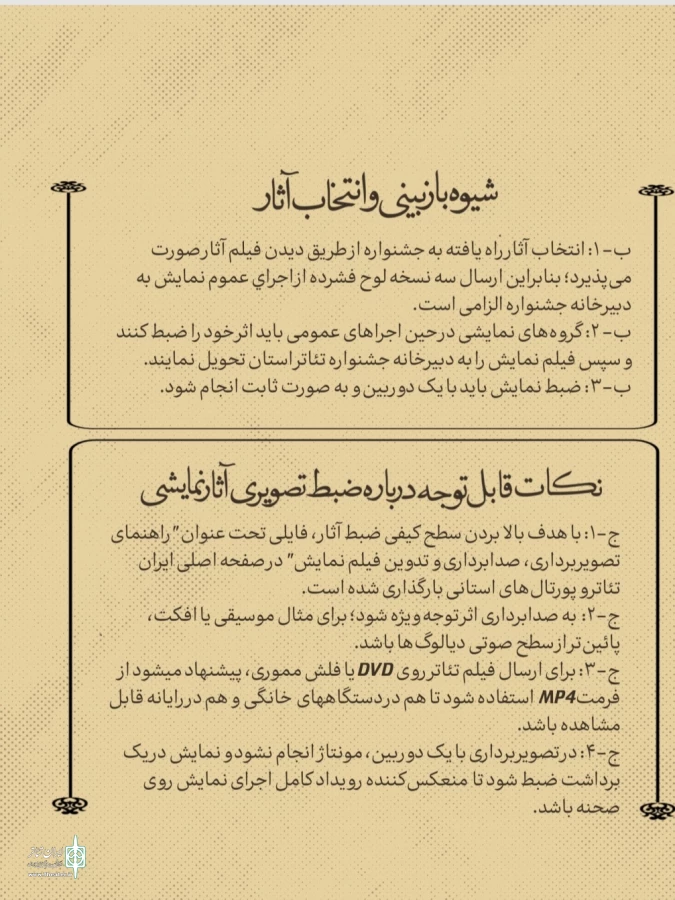 شیوه بازبینی و انتخاب آثار
ب-۱: انتخاب آثار راه یافته به جشنواره از طریق دیدن فیلم آثار صورت
می‌پذیرد؛ بنابراین ارسال سه نسخه لوح فشرده از اجراي عموم نمایش به
دبیرخانه جشنواره الزامی است.
ب-۲: گروه‌های نمایشی در حین اجراهای عمومی باید اثر خود را ضبط کنند
و سپس فیلم نمایش را به دبیرخانه جشنواره تئاتر استان تحویل نمایند.
ب-۳: ضبط نمایش باید با یک دوربین و به صورت ثابت انجام شود.
نکات قابل توجه درباره ضبط تصویری آثار نمایشی
ج-۱: با هدف بالا بردن سطح کیفی ضبط آثار، فایلی تحت عنوان "راهنمای
تصویربرداری، صدابرداری و تدوین فیلم نمایش" در صفحه اصلی ایران
تئاتر و پورتال‌های استانی بارگذاری شده است.
ج-۲: به صدابرداری اثر توجه ویژه شود؛ برای مثال موسیقی یا افکت،
پائین‌تر از سطح صوتی دیالوگ‌ها باشد.
ج-۳: برای ارسال فیلم تئاتر روی DVD یا فلش مموری، پیشنهاد میشود از
فرمت MP4 استفاده شود تا هم در دستگاههای خانگی و هم در رایانه قابل
مشاهده باشد.
ج-۴: در تصویربرداری با یک دوربین، مونتاژ انجام نشود و نمایش در یک
برداشت ضبط شود تا منعکس‌کننده رویداد کامل اجرای نمایش روی
صحنه باشد.
ایران تئاتر